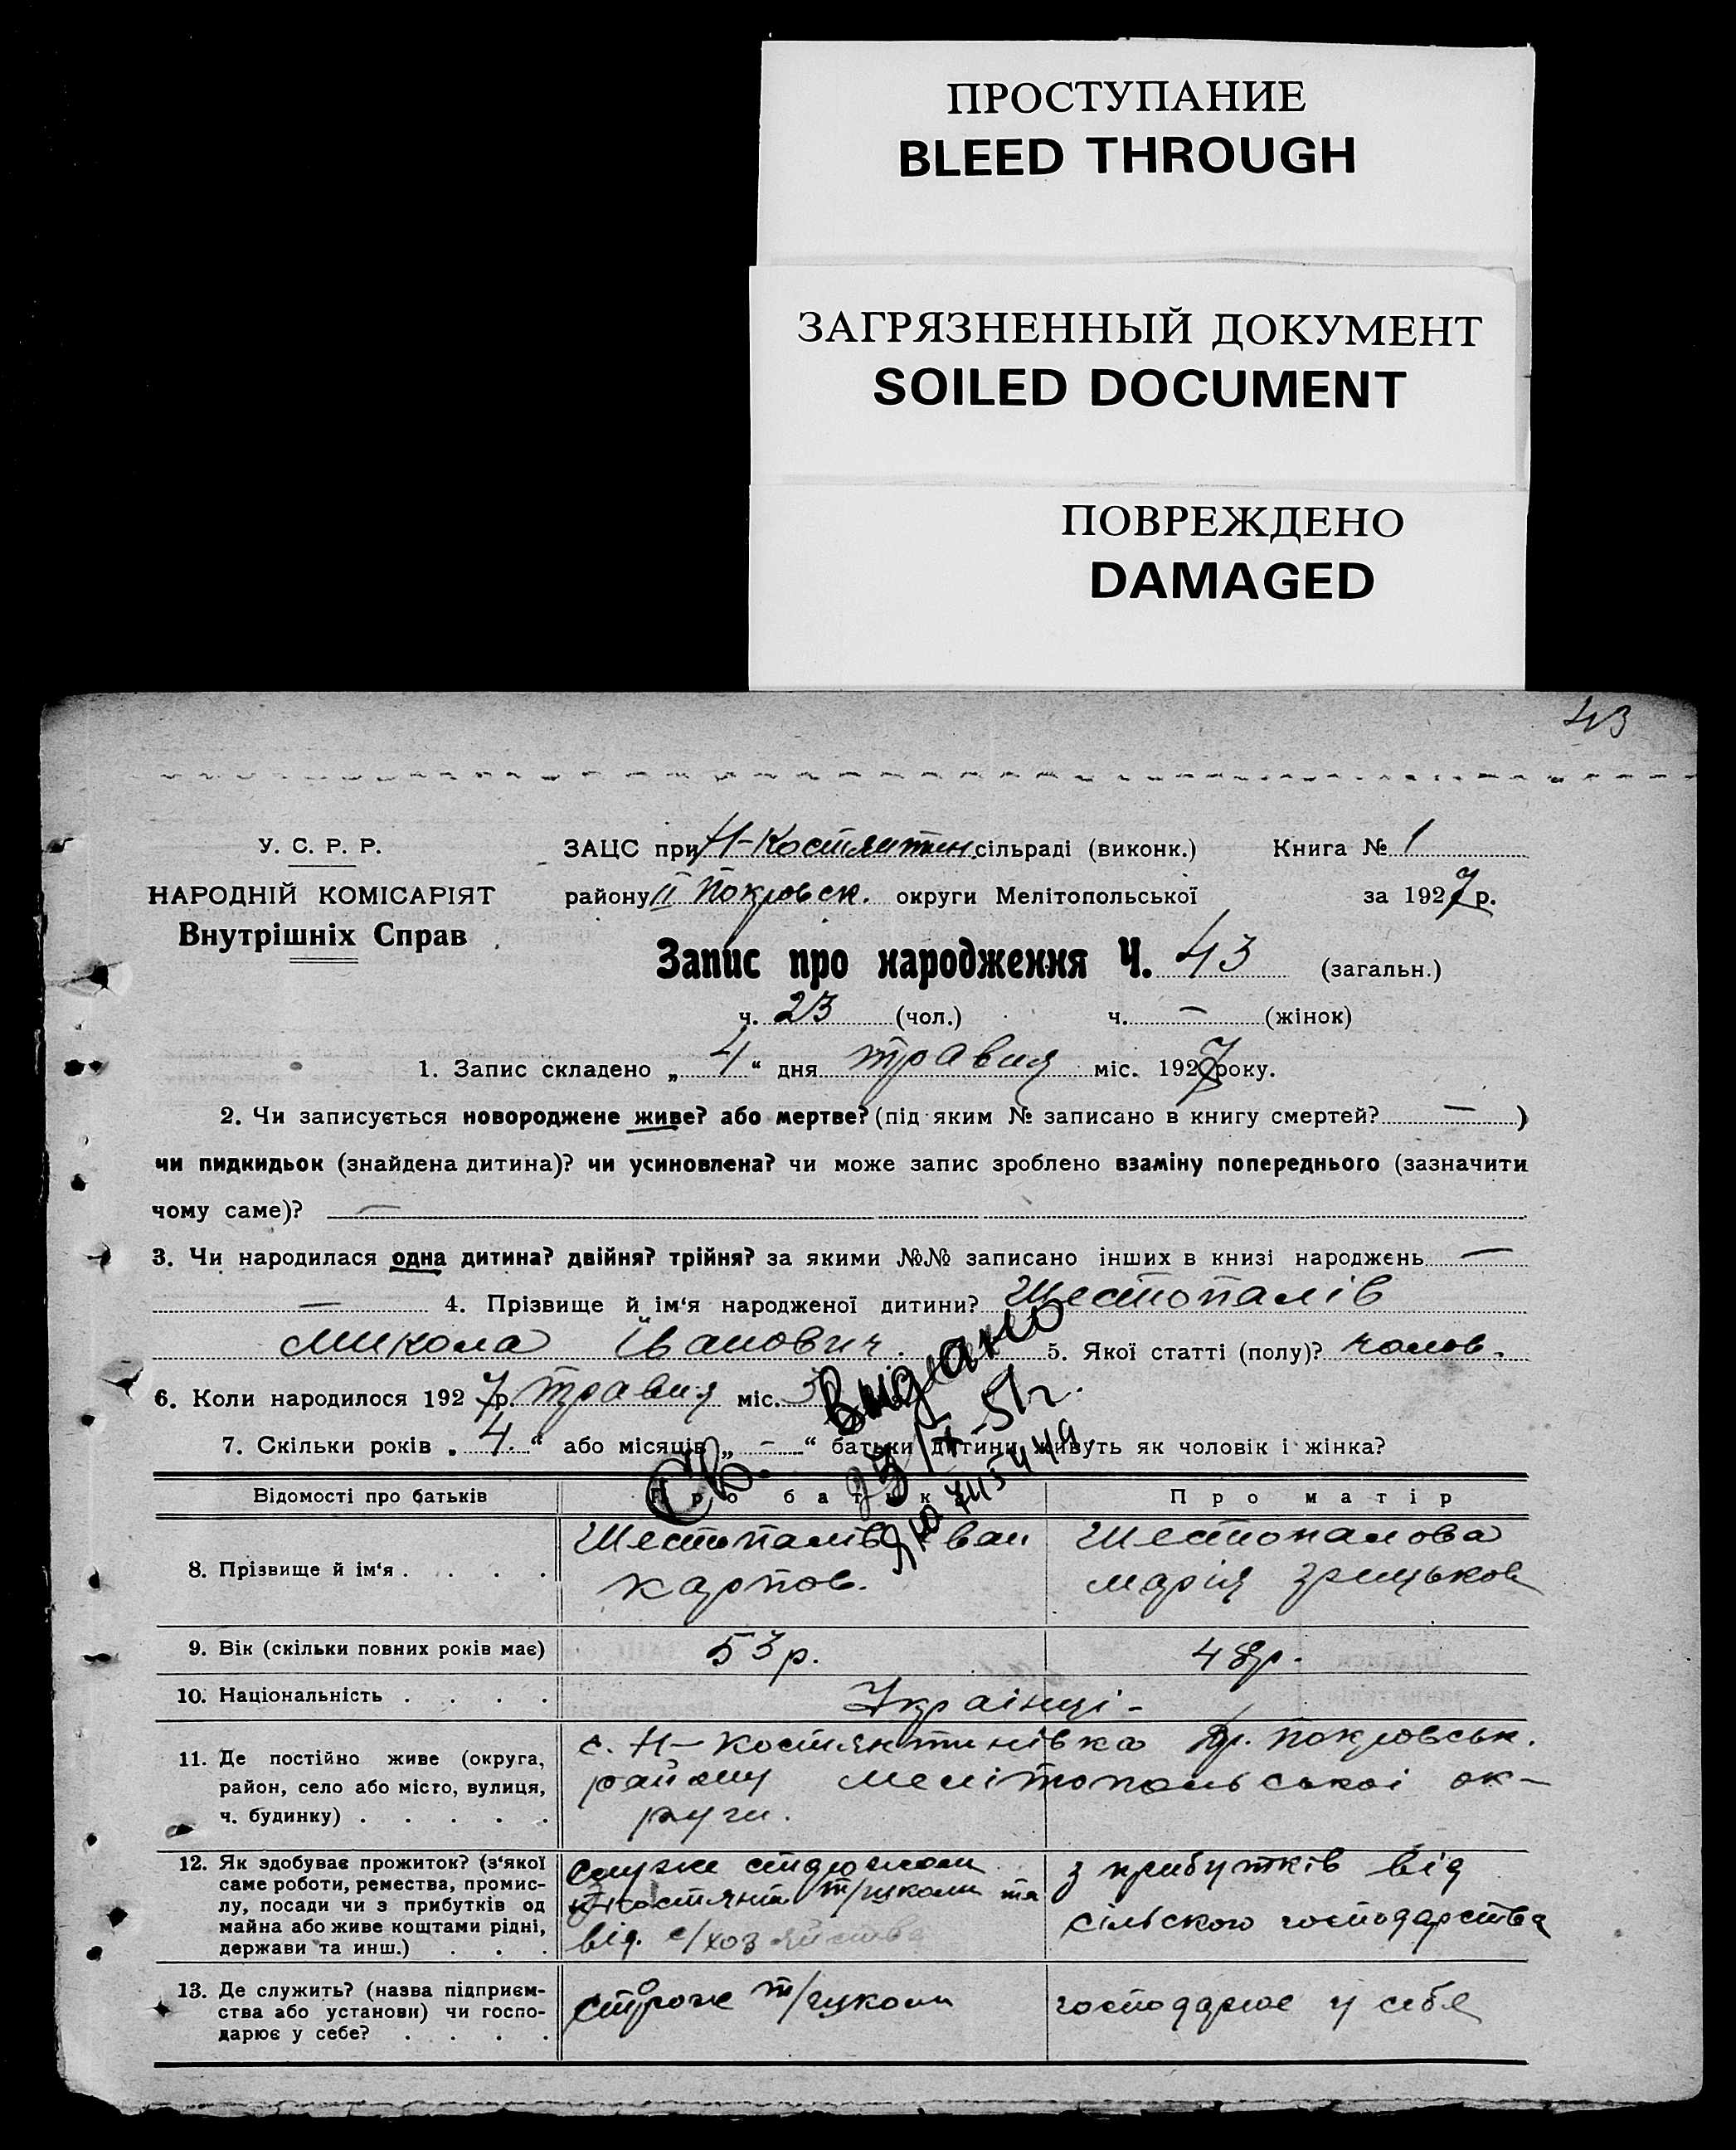 ПРОСТУПАНИЕ
BLEED THROUGH
ЗАГРЯЗНЕННЫЙ ДОКУМЕНТ
SOILED DOCUMENT
ПОВРЕЖДЕНО
DAMAGED
43
У. С. Р. Р.
НАРОДНІЙ КОМІСАРІЯТ
Внутрішніх Справ
ЗАЦС при Н-Костянтин. сільраді (виконк.) Книга № 1
району ІІ Покровск. округи Мелітопольської за 1927 р.
Запис про народження Ч. 43 (загальн.)
ч. 23 (чол.) ч. — (жінок)
1. Запис складено „ 4 “ дня травня міс. 1927 року.
2. Чи записується новороджене живе? або мертве? (під яким № записано в книгу смертей? — )
чи пидкидьок (знайдена дитина)? чи усиновлена? чи може запис зроблено взаміну попереднього (зазначити
чому саме)? —
3. Чи народилася одна дитина? двійня? трійня? за якими №№ записано інших в книзі народжень —
— 4. Прізвище й ім‘я народженої дитини? Шестопалів
Микола Іванович. 5. Якої статті (полу)? чолов.
6. Коли народилося 1927 р. травня міс. 3
7. Скільки років „ 4. “ або місяців „ - “ батьки дитини живуть як чоловік і жінка?
Св. Видано
51 г.
Відомості про батьків Про батьк Про матір
8. Прізвище й ім‘я . . . .
Шестопалів Іван
карпов.
Шестопалова
марія грицьков
9. Вік (скільки повних років має) 53 р. 48 р.
10. Національність . . . . Українці -
11. Де постійно живе (округа,
район, село або місто, вулиця,
ч. будинку) . . . . .
с. Н-Костянтинівка покровськ.
району мелітопольської ок-
руги.
12. Як здобуває прожиток? (з‘якої
саме роботи, ремества, промис-
лу, посади чи з прибутків од
майна або живе коштами рідні,
держави та инш.) . . .
служе
та
від. с/хозяйства
з прибутків від
сільского господарства
13. Де служить? (назва підприєм-
ства або установи) чи госпо-
дарює у себе? . . . .
сторож
господарює у себе